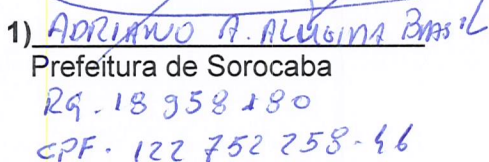 1) ADRIANO A. ALMEIDA BRASIL
Prefeitura de Sorocaba
RG. 18 958 180
CPF. 122 752 258-46